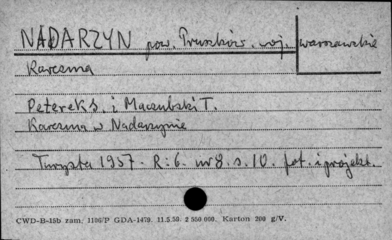 NADARZYN pow. Pruszków. woj. warszawskie
Karczma
Peterek S. i Maczubski T.
Karczma w Nadarzynie
Turysta 1957. R: 6. nr 8. s. 10. fot. i projekt.
CWD-B-15b zam. 1106/P GDA-1479. 11.5.50. 2 500 000. Karton 200 g/V.